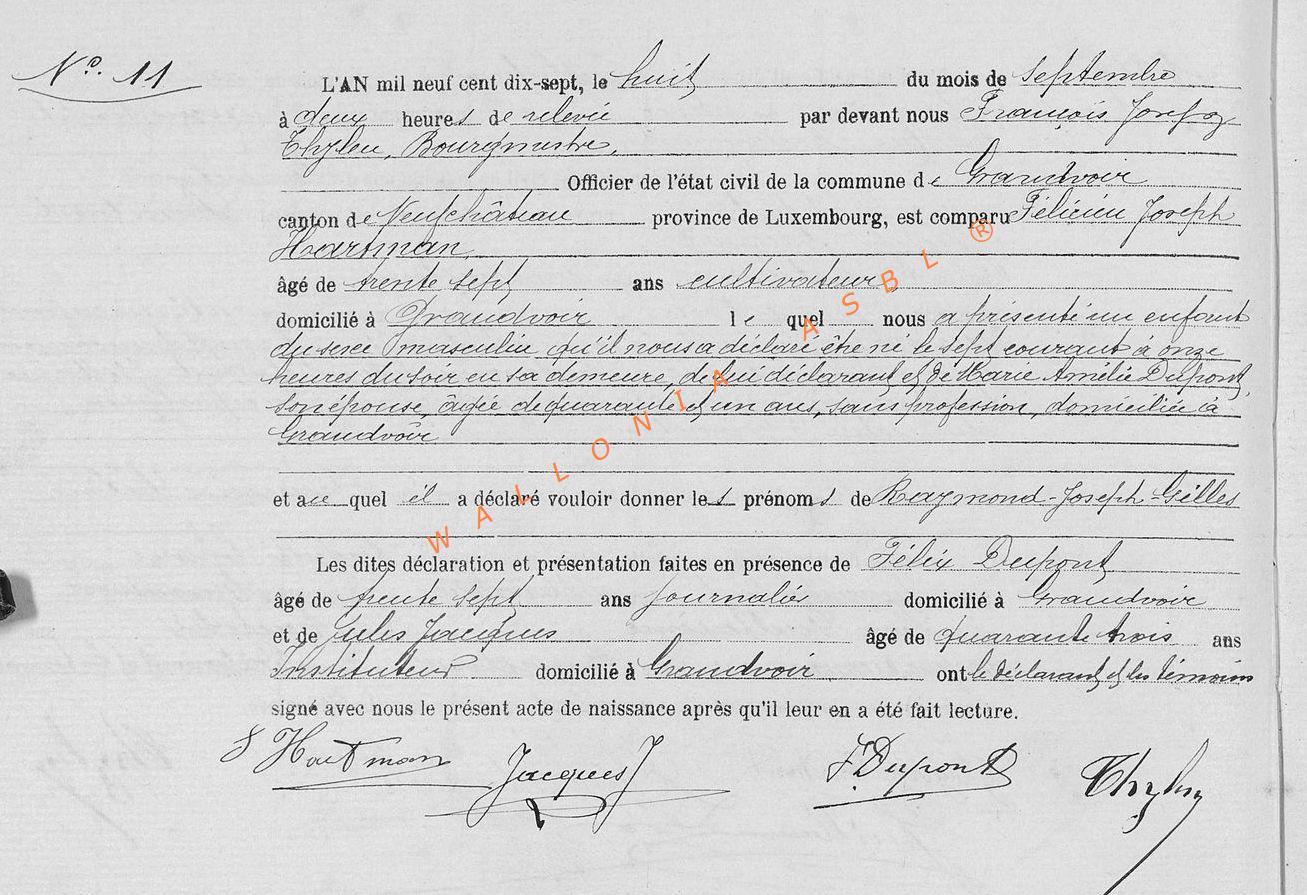 Nº. 11
L'AN mil neuf cent dix-sept, le huit du mois de septembre
à deux heures de relevée par devant nous François Joseph
Thyleu, Bourgmestre,
Officier de l'état civil de la commune de Grandvoir
canton de Neufchâteau province de Luxembourg, est comparu Félicien Joseph
Hartman
âgé de trente sept ans cultivateur
domicilié à Grandvoir le quel nous a présenté un enfant
du sexe masculin qu'il nous a déclaré être né le sept courant à onze
heures du soir en sa demeure, de lui déclarant et de Marie Amélie Dupont,
son épouse, âgée de quarante et un ans, sans profession, domiciliée à
Grandvoir
et au quel il a déclaré vouloir donner les prénoms de Raymond-Joseph-Gilles
Les dites déclaration et présentation faites en présence de Félix Dupont
âgé de trente sept ans journalier domicilié à Grandvoir
et de Jules Jacques âgé de quarante trois ans
Instituteur domicilié à Grandvoir ont le déclarant et les témoins
signé avec nous le présent acte de naissance après qu'il leur en a été fait lecture.
Hartman Jacques J F. Dupont
WALLONIA ASBL ®